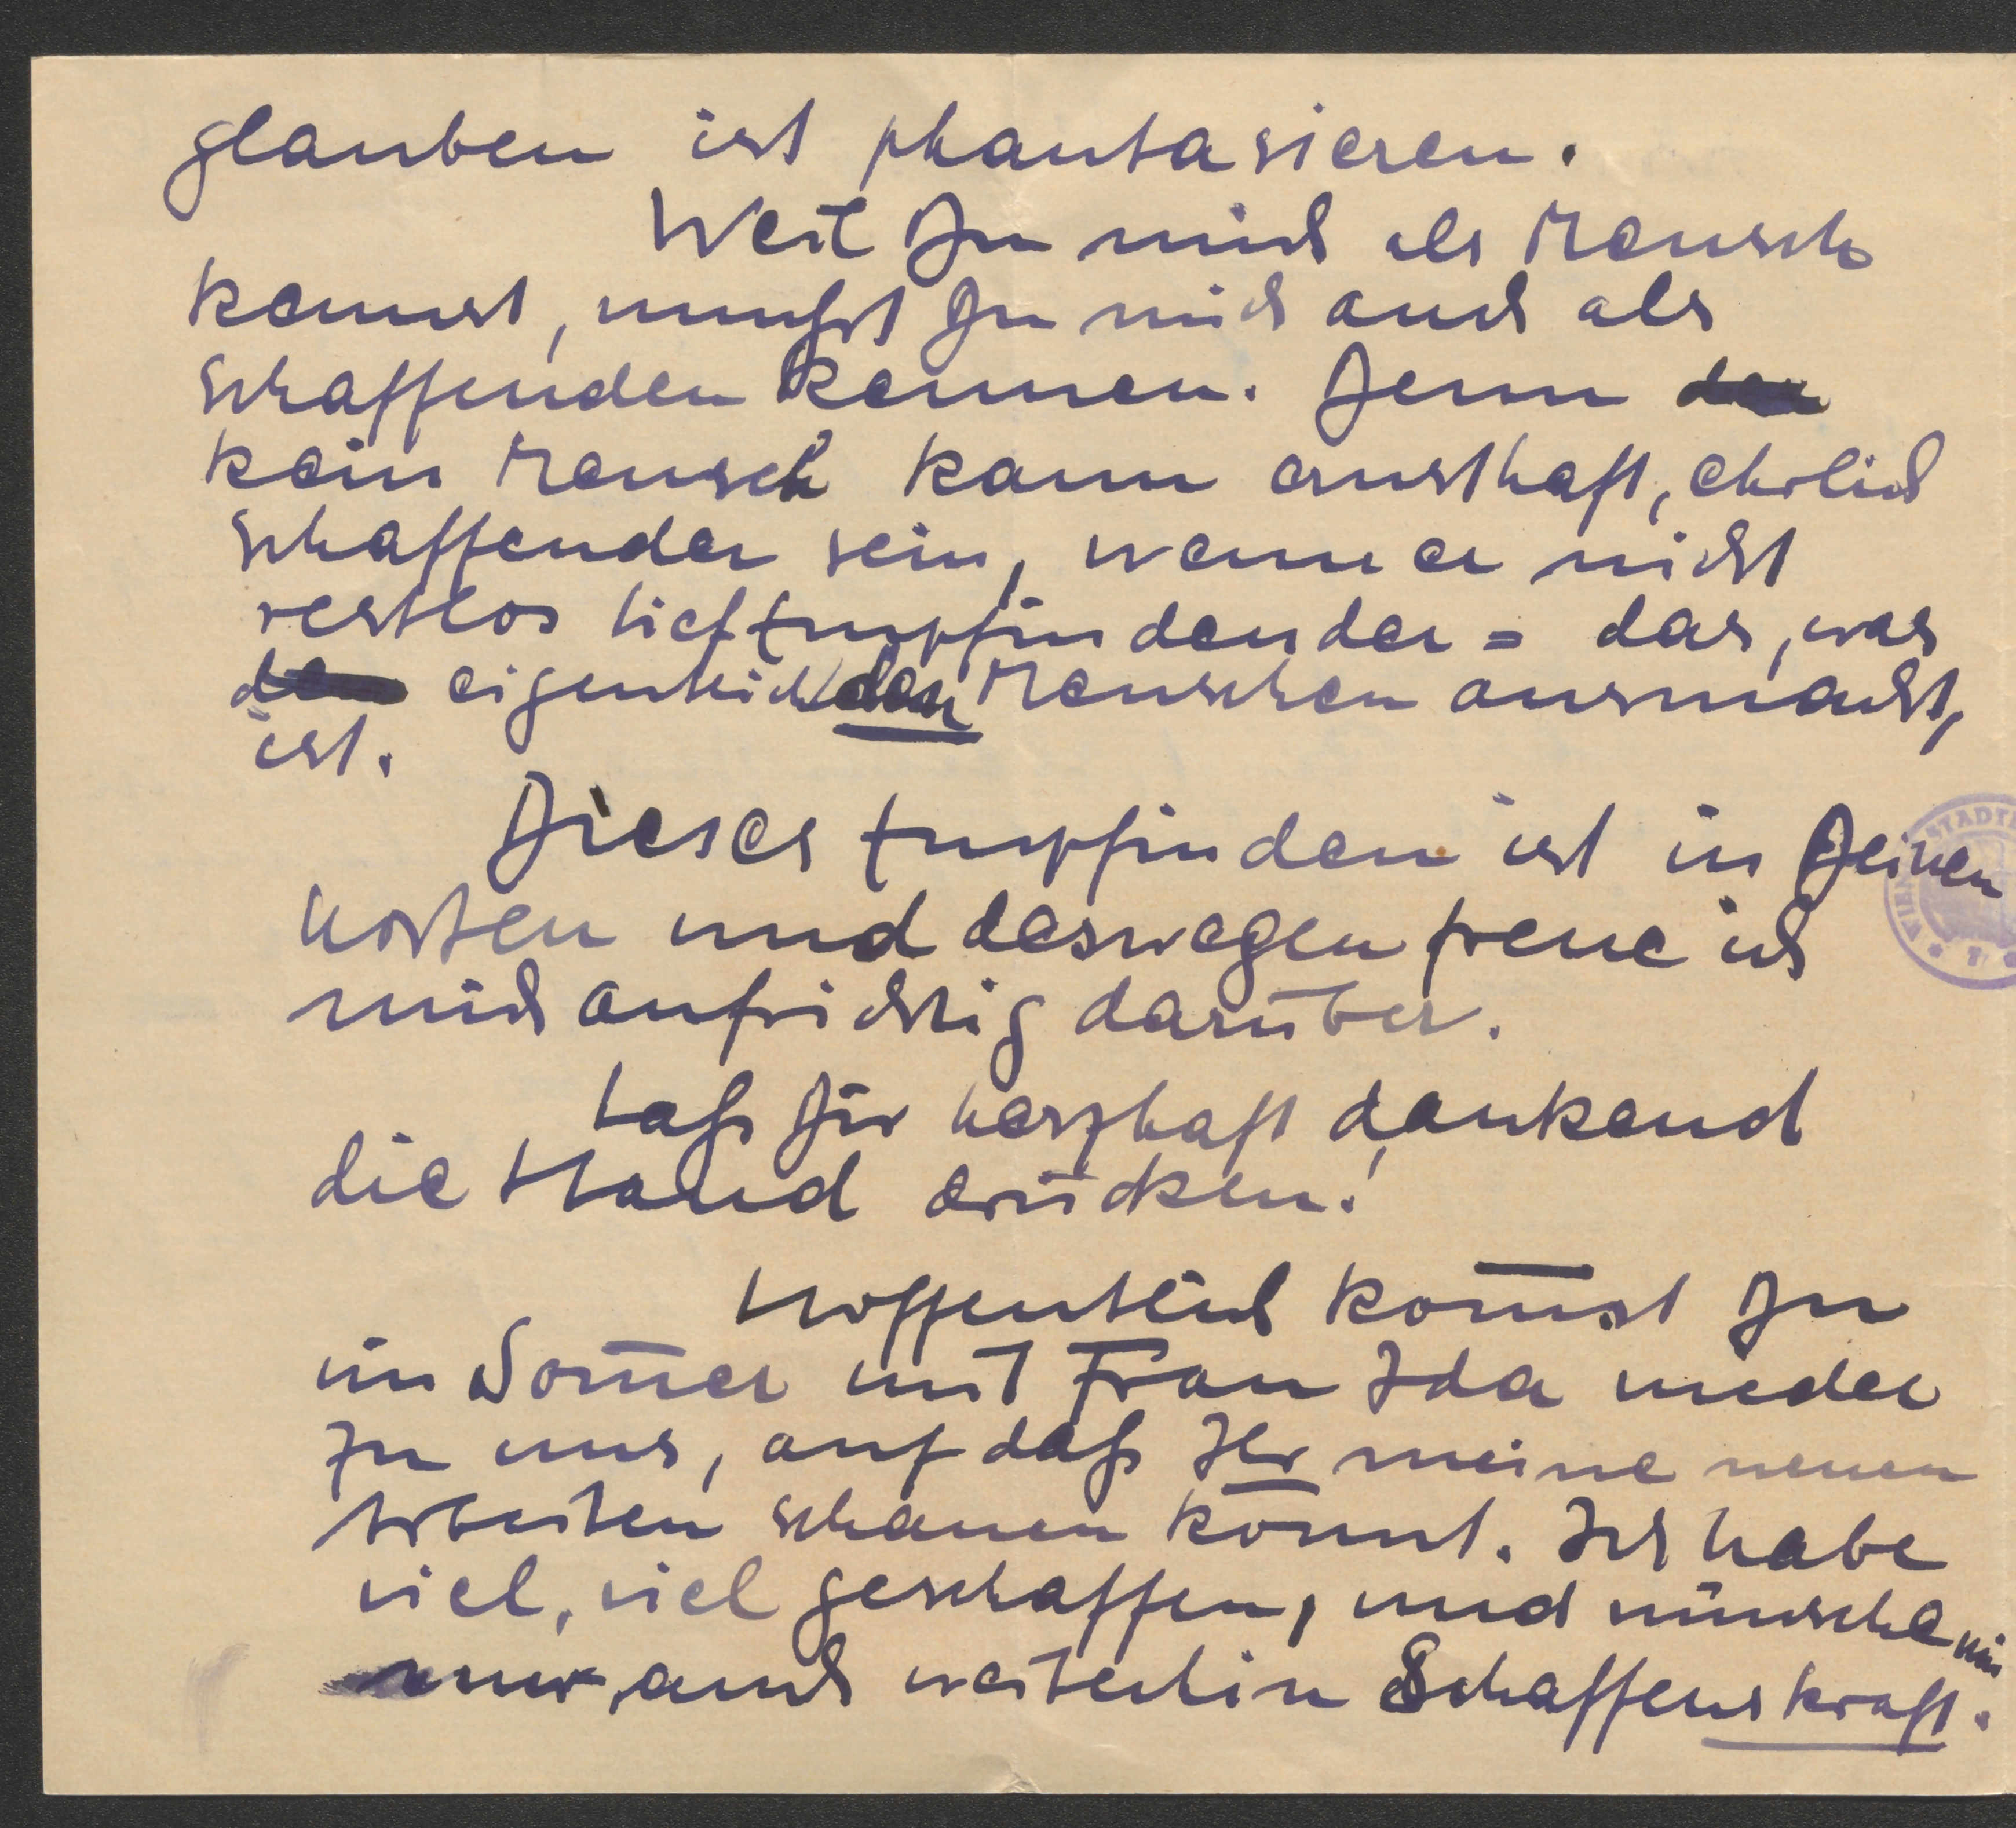 glauben ist phantasieren.
Weil Du mich als Mensch
kennst, mußst Du mich auch als
Schaffenden kennen. Denn
kein Mensch kann ernsthaft, ehrlich
Schaffender sein, wenn er nicht
restlos tiefEmpfindender = das, was
eigentlich den Menschen ausmacht,
ist.
Dieses Empfinden ist in Deinen
Worten und deswegen freue ich
mich aufrichtig darüber.
Laß Dir herzhaft dankend
die Hand drücken!
Hoffentlich kom̄st Du
im Som̄er mit Frau Ida wieder
zu uns, auf daß Ihr meine neuen
Arbeiten schauen könnt. Ich habe
viel, viel geschaffen, und wünsche mir
nur, auch weiterhin Schaffenskraft.
WIEN STADTB